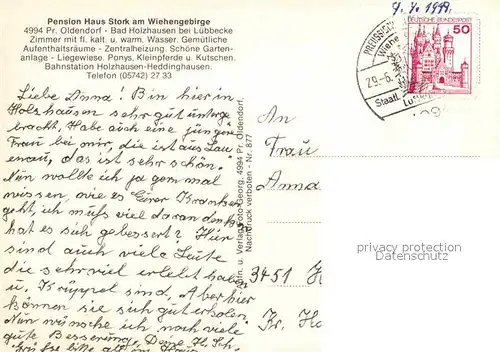 Pension Haus Stork am Wiehengebirge
4994 Pr. Oldendorf - Bad Holzhausen bei Lübbecke
Zimmer mit fl. kalt. u. warm. Wasser. Gemütliche
Aufenthaltsräume - Zentralheizung. Schöne Garten-
anlage - Liegewiese. Ponys, Kleinpferde u. Kutschen.
Bahnstation Holzhausen-Heddinghausen.
Telefon (05742) 27 33
Liebe Anna! Bin hier in
Holzhausen sehr gut unterge
bracht. Habe auch eine jüngere
Frau bei mir, die ist aus Lau
enau, das ist sehr schön.
Nun wollte ich ja gern mal
wissen, wie es Eurer Kranken
geht, ich muß viel daran denken
hat es sich gebessert? Hier
sind auch viele Leute
die sehr viel erlebt haben
u. Krüppel sind. Aber hier
können sie sich gut erholen.
Nun wünsche ich noch viele
gute Besserung. Deine H. Sch.
Grüße bitte all im Haus
u. Verlag Foto-Georg, 4994 Pr. Oldendorf,
Nachdruck verboten - Nr. 877
DEUTSCHE BUNDESPOST
50
PREUSSISCH
Wiehe
29.-6.
Staatl.
Luftk
An
Frau
Anna
3451
Kr. Ho
privacy protection
Datenschutz